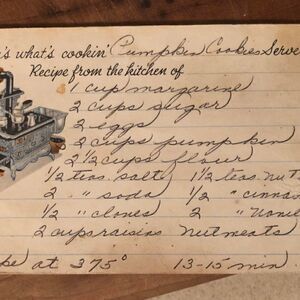 's what's cookin' Pumpkin Cookies Serve
Recipe from the kitchen of
1 cup margarine
2 cups sugar
2 eggs
2 cups pumpkin
2 1/2 cups flour
1/2 teas. salt 1 1/2 teas nut
2 " soda 2 " cinna
1/2 " cloves 2 "
2 cups raisins nutmeats
ke at 375° 13-15 min